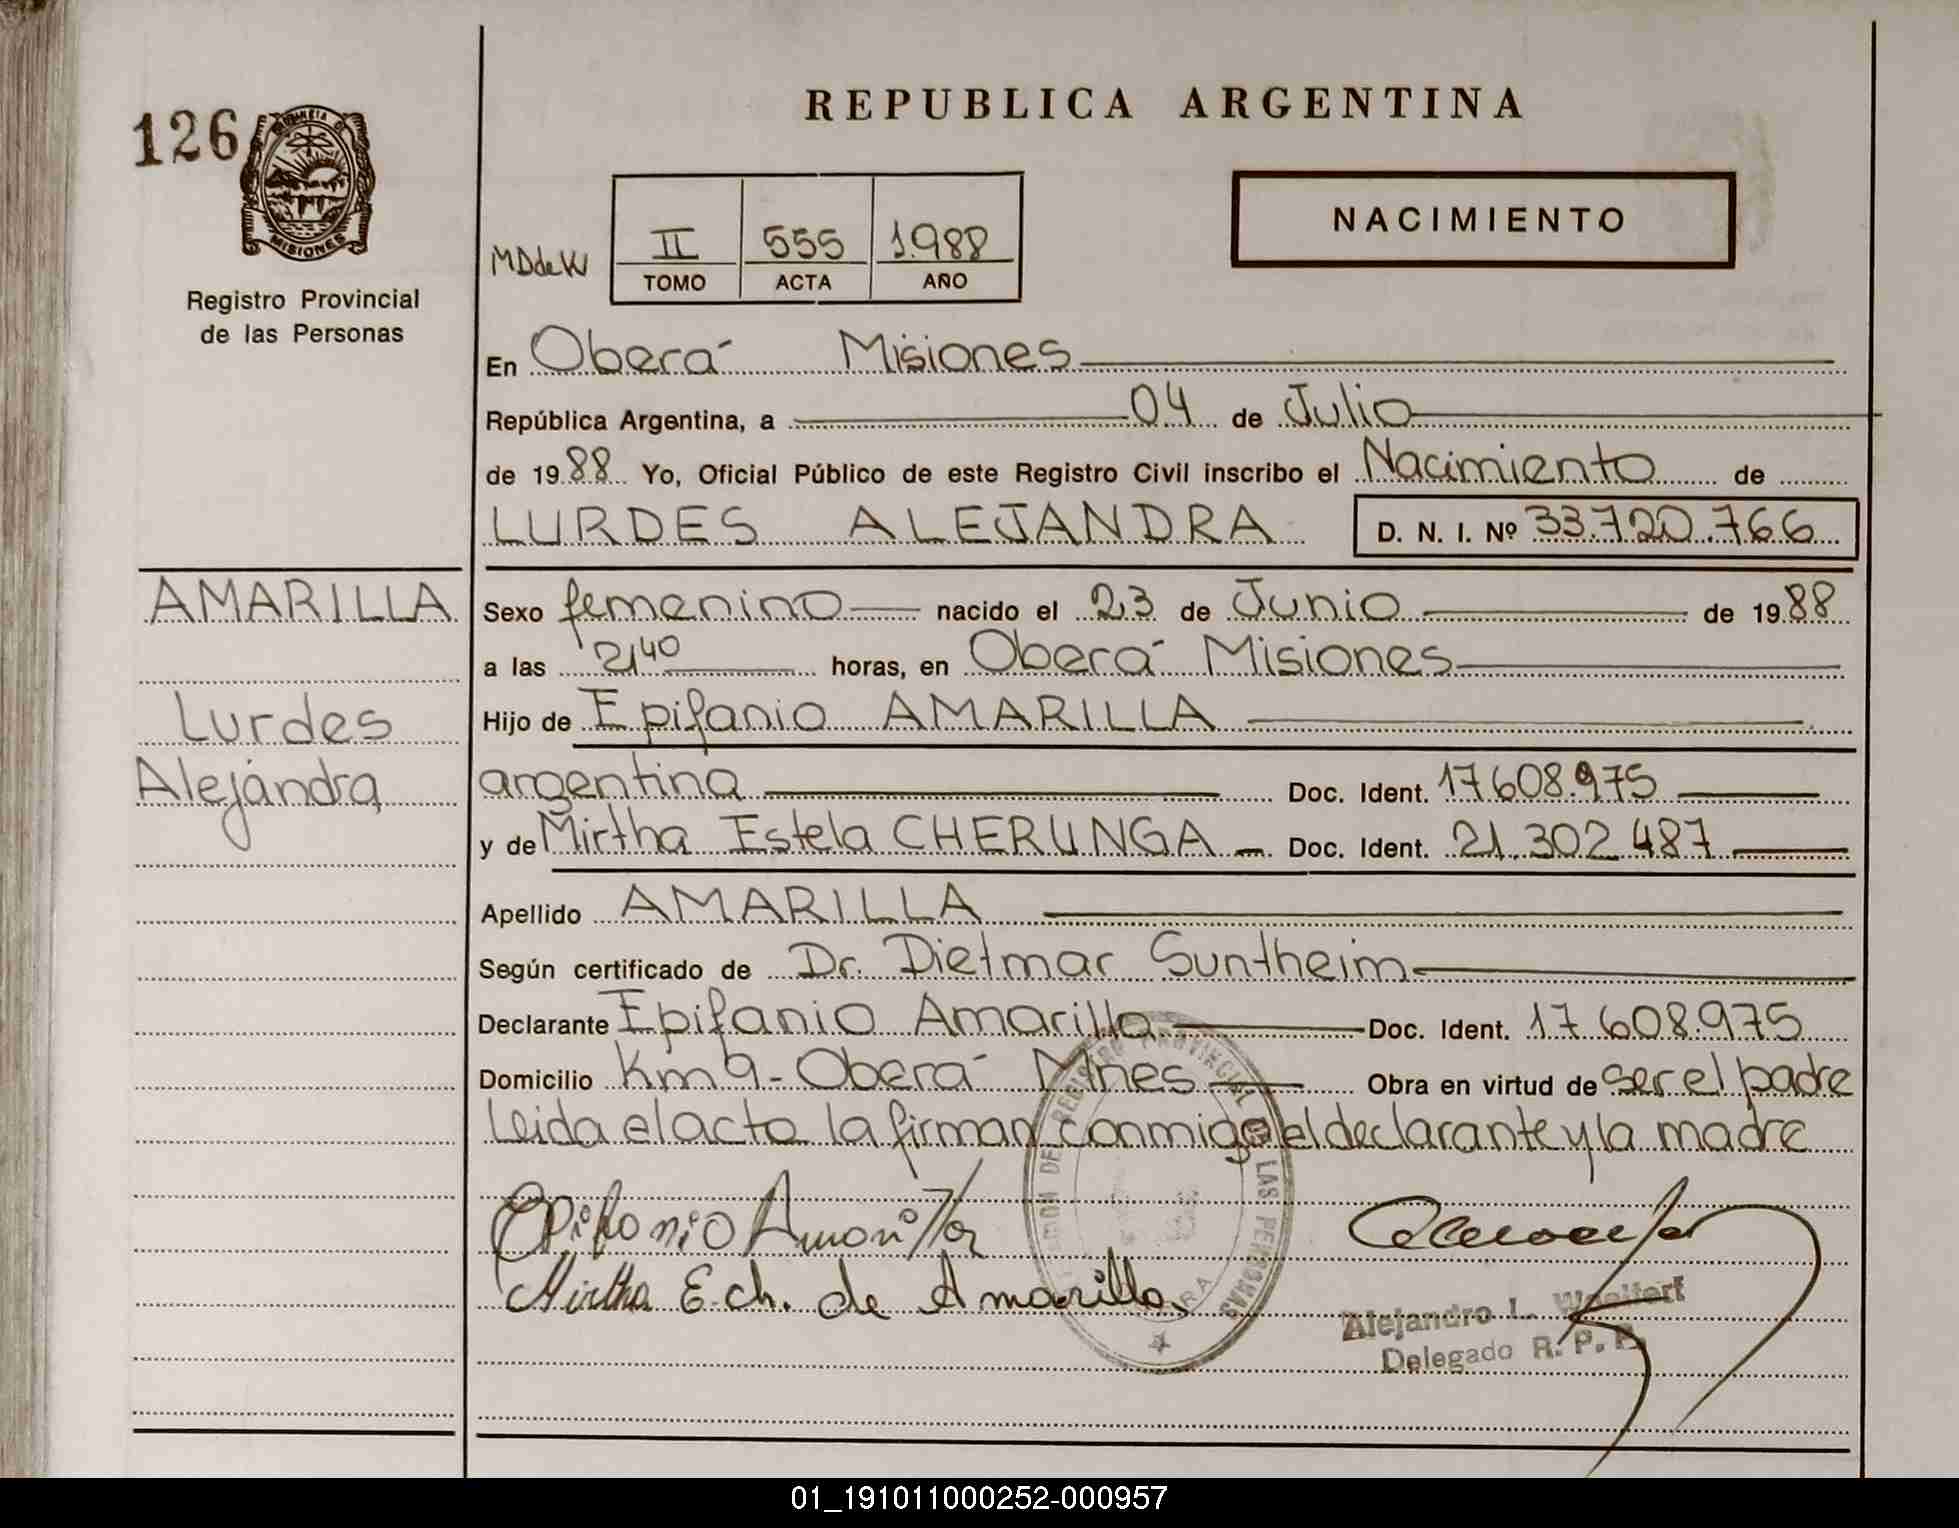 126
PROVINCIA DE
MISIONES
Registro Provincial
de las Personas
REPUBLICA ARGENTINA
NACIMIENTO
MDdeW
II 555 1.988
TOMO ACTA AÑO
En Oberá Misiones
República Argentina, a 04 de Julio
de 1988 Yo, Oficial Público de este Registro Civil inscribo el Nacimiento de
LURDES ALEJANDRA D. N. I. Nº 33.720.766
AMARILLA
Lurdes
Alejandra
Sexo femenino nacido el 23 de Junio de 1988
a las 21⁴⁰ horas, en Oberá Misiones
Hijo de Epifanio AMARILLA
argentina Doc. Ident. 17.608.975
y de Mirtha Estela CHERUNGA Doc. Ident. 21.302.487
Apellido AMARILLA
Según certificado de Dr. Dietmar Suntheim
Declarante Epifanio Amarilla Doc. Ident. 17.608.975
Domicilio Km 9 - Oberá Mnes Obra en virtud de ser el padre
Leida el acto la firman conmigo el declarante y la madre
Epifanio Amarilla
Mirtha E. ch. de Amarilla
DEL REGISTRO PROVINCIAL DE LAS PERSONAS
Alejandro L.
Delegado R. P. P.
01_191011000252-000957